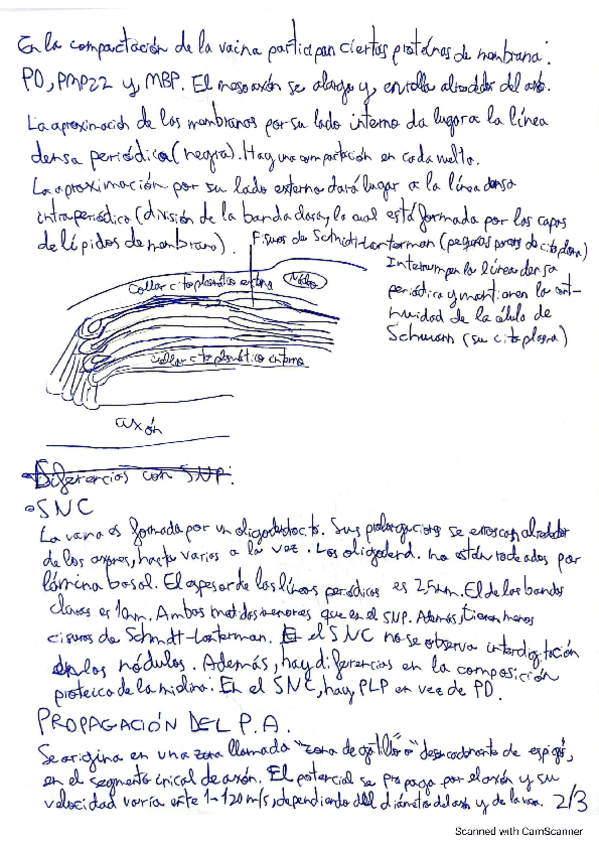 En la compactación de la vaina participan ciertas proteínas de membrana:
PO, PMP22 y, MBP. El mesoaxón se alarga y, enrolla alrededor del axón.
La aproximación de las membranas por su lado interno da lugar a la línea
densa periódica (negra). Hay una compactación en cada vuelta.
La aproximación por su lado externo dará lugar a la línea densa
intraperiódica (división de la banda clara y lo cual está formada por las capas
de lípidos de membrana).
Fisuras de Schmidt-Lanterman (pequeños pasos de citoplasma)
Interrumpen la línea densa
periódica y mantienen la cont-
inuidad de la célula de
Schwann (su citoplasma)
Collar citoplasmático externo
Núcleo
Collar citoplasmático interno
axón
Diferencias con SNP:
SNC
La vaina es formada por un oligodendrocito. Sus prolongaciones se enroscan alrededor
de los axones, hasta varios a la vez. Los oligodend. no están rodeados por
lámina basal. El espesor de las líneas periódicas es 2,5nm. El de las bandas
claras es 1nm. Ambas medidas menores que en el SNP. Además, tienen menos
cisuras de Schmidt-Lanterman. el SNC no se observa interdigitación
en los nódulos. Además, hay diferencias en la composición
proteica de la mielina. En el SNC, hay PLP en vez de PO.
PROPAGACIÓN DEL P.A.
Se origina en una zona llamada "zona de gatillo" o desencadenante de espiga,
en el segmento inicial de axón. El potencial se propaga por el axón y su
velocidad varía entre 1-120 m/s, dependiendo del diámetro del axón y de la vaina. 2/3
Scanned with CamScanner